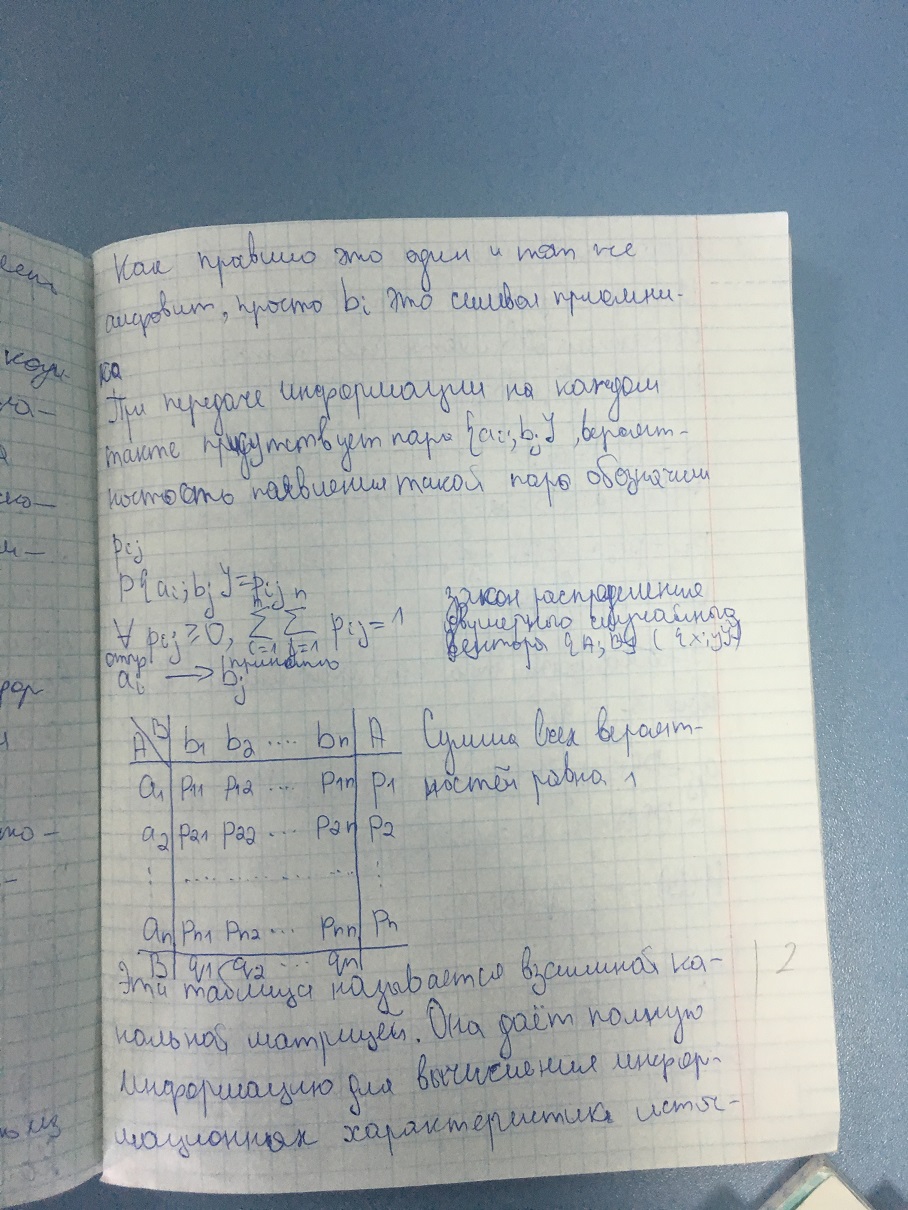 Как правило это один и тот же
алфовит, просто bᵢ это символ приемни-
ка
При передаче информации на каждом
такте присутствует пара {aᵢ; bⱼ}, вероят-
ностость появления такой пары обозначим
pᵢⱼ
P{aᵢ; bⱼ}=pᵢⱼ
∀ pᵢⱼ ≥ 0, ∑ᵢ₌₁ⁿ ∑ⱼ₌₁ⁿ pᵢⱼ = 1
закон распределения
двумерного случайного
вектора {A; B} ( {x; y})
отпр принято
aᵢ → bⱼ
A\B b₁ b₂ .... bₙ A
a₁ p₁₁ p₁₂ ... p₁ₙ p₁
a₂ p₂₁ p₂₂ ... p₂ₙ p₂
⋮ .................. ⋮
aₙ pₙ₁ pₙ₂ ... pₙₙ pₙ
B q₁ q₂ ... qₙ
Сумма всех вероят-
ностей равна 1
Эта таблица называется взаимной ка-
нальной матрицей. Она даёт полную
информацию для вычисления инфор-
мационных характеристик источ-
2